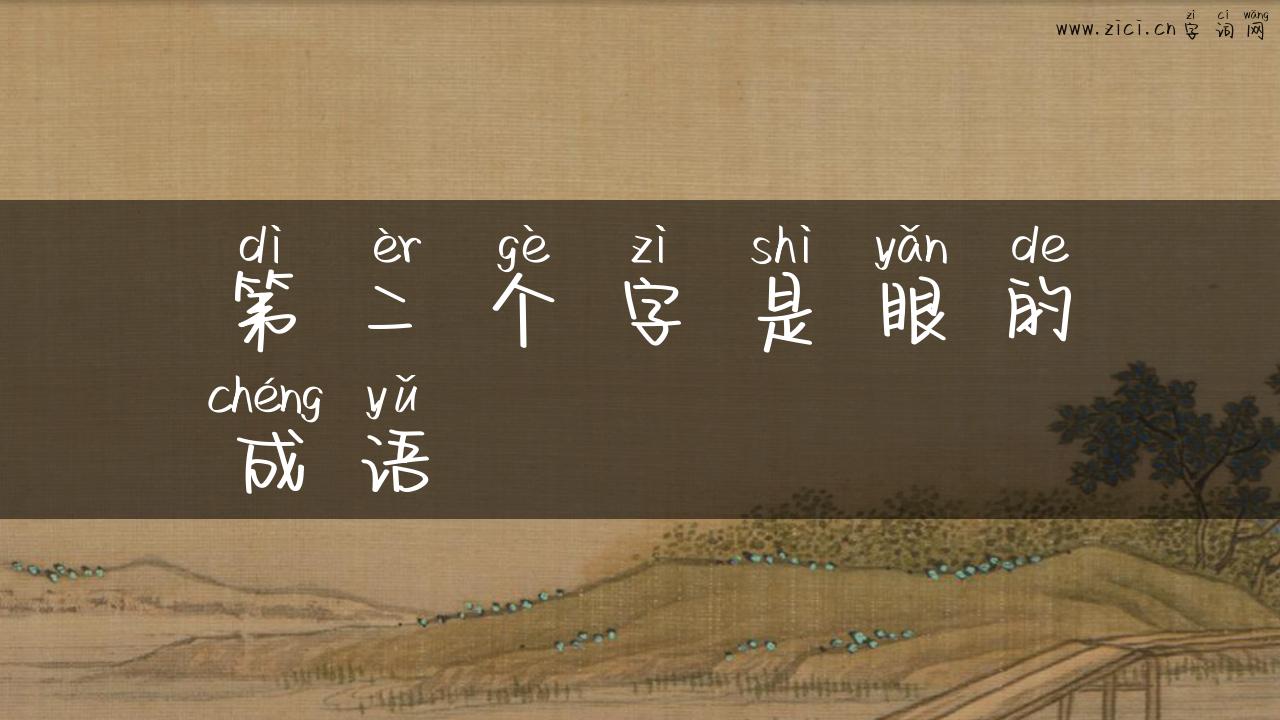 zì cí wǎng
www.zici.cn字词网
dì èr gè zì shì yǎn de
第二个字是眼的
chéng yǔ
成语